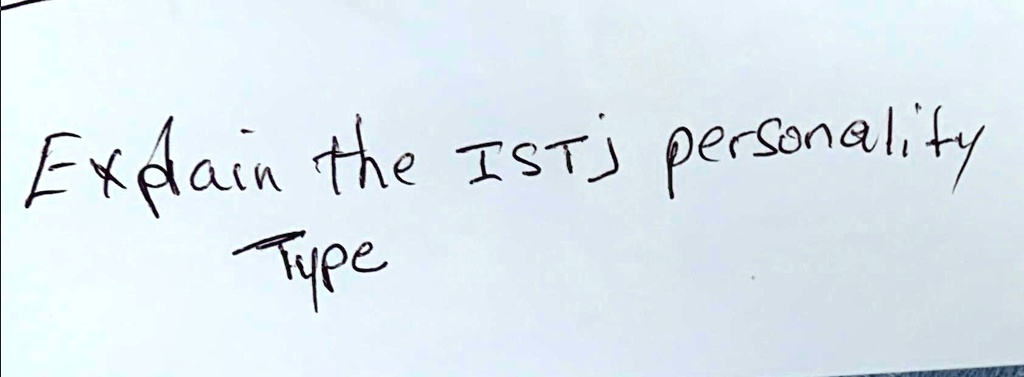 Explain the ISTj personality
Type